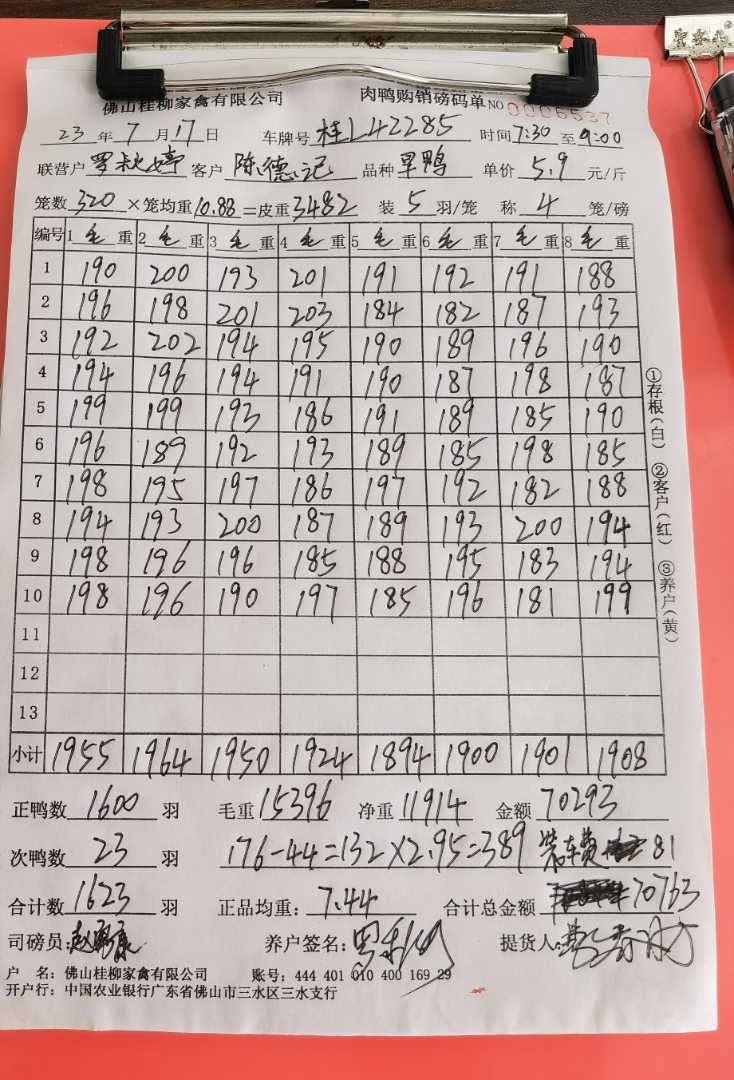 佛山桂柳家禽有限公司 肉鸭购销磅码单 NO 0006537
23 年 7 月 17 日 车牌号 桂L42285 时间 7:30 至 9:00
联营户 罗秋婷 客户 陈德记 品种 旱鸭 单价 5.9 元/斤
笼数 320 ×笼均重 10.88 =皮重 3482 装 5 羽/笼 称 4 笼/磅
编号 1 毛 重 2 毛 重 3 毛 重 4 毛 重 5 毛 重 6 毛 重 7 毛 重 8 毛 重
1 190 200 193 201 191 192 191 188
2 196 198 201 203 184 182 187 193
3 192 202 194 195 190 189 196 190
4 194 196 194 191 190 187 198 187
5 199 199 193 186 191 189 185 190
6 196 189 192 193 189 185 198 185
7 198 195 197 186 197 192 182 188
8 194 193 200 187 189 193 200 194
9 198 196 196 185 188 195 183 194
10 198 196 190 197 185 196 181 199
11
12
13
小计 1955 1964 1950 1924 1894 1900 1901 1908
①存根(白) ②客户(红) ③养户(黄)
正鸭数 1600 羽 毛重 15396 净重 11914 金额 70293
次鸭数 23 羽 176-44=132×2.95=389 装车费 81
合计数 1623 羽 正品均重: 7.44 合计总金额 70763
司磅员: 养户签名: 提货人:
户 名: 佛山桂柳家禽有限公司 账号: 444 401 010 400 169 29
开户行: 中国农业银行广东省佛山市三水区三水支行